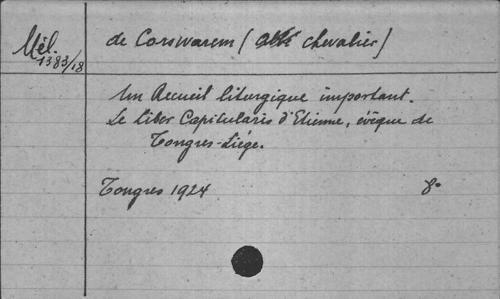 Mél.
1383/18
de Corswarem (abbé chevalier)
Un Recueil liturgique important.
Le liber Capitularis d'Etienne, évêque de
Tongres-Liége.
Tongres 1924 8º